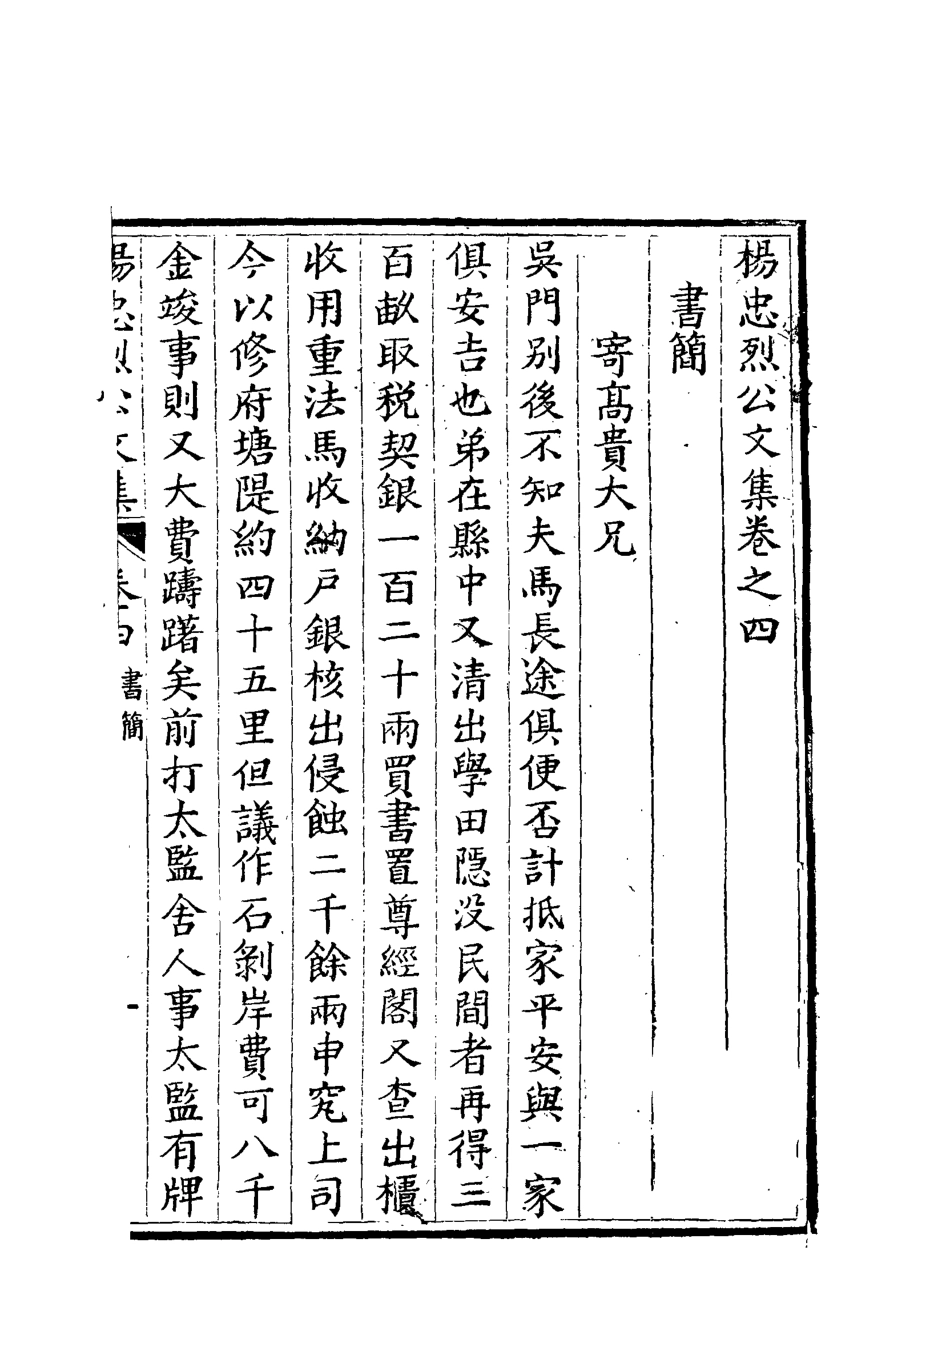 楊忠烈公文集卷之四
書簡
寄髙貴大兄
吳門别後不知夫馬長途俱便否計抵家平安與一家
俱安吉也弟在縣中又清出學田隠没民間者再得三
百畝取税契銀一百二十兩買書置尊經閣又查出櫃
收用重法馬收納戸銀核出侵蝕二千餘兩申究上司
今以修府塘隄約四十五里但議作石剝岸費可八千
金竣事則又大費躊躇矣前打太監舍人事太監有牌
楊忠烈公文集
卷四
書簡
一